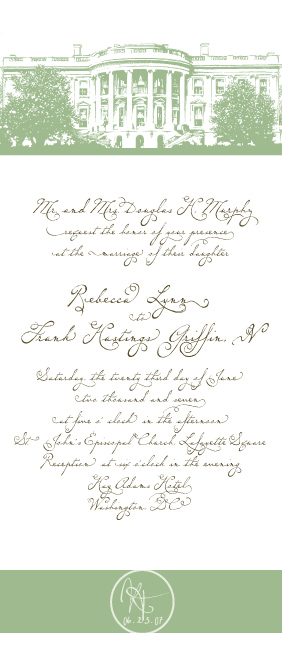 Mr. and Mrs. Douglas H. Murphy
request the honor of your presence
at the marriage of their daughter
Rebecca Lynn
to
Frank Hastings Griffin, IV
Saturday, the twenty third day of June
two thousand and seven
at five o'clock in the afternoon
St. John's Episcopal Church, Lafayette Square
Reception at six o'clock in the evening
Hay Adams Hotel
Washington, DC
06.23.07